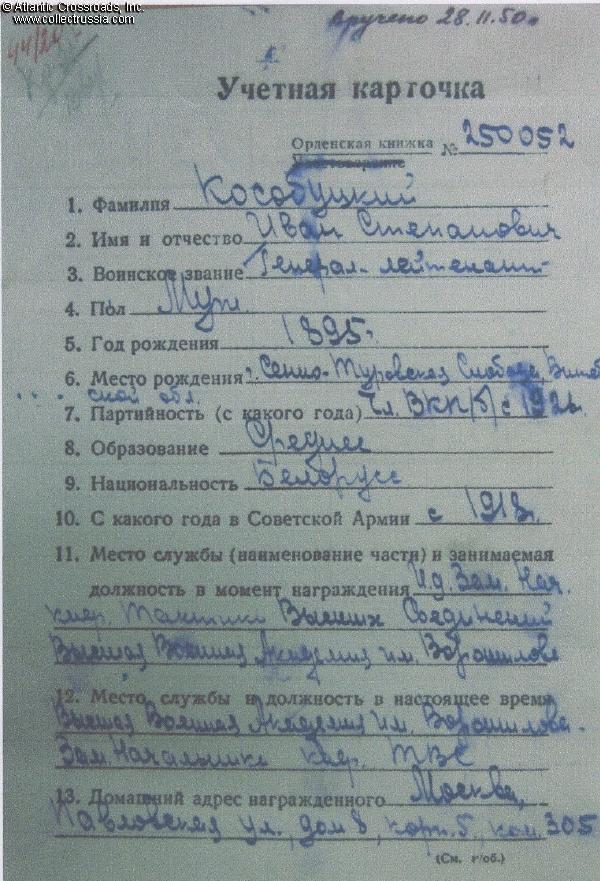 © Atlantic Crossroads, Inc.
www.collectrussia.com
вручено 28.11.50г
44/24
Учетная карточка
Орденская книжка № 250052
Удостоверение
1. Фамилия Кособуцкий
2. Имя и отчество Иван Степанович
3. Воинское звание Генерал-лейтенант
4. Пол Муж.
5. Год рождения 1895г.
6. Место рождения Сенно-Туровская Слобода, Витеб
ской обл.
7. Партийность (с какого года) Чл. ВКП/б/ с 192
8. Образование Среднее
9. Национальность Белорусс
10. С какого года в Советской Армии с 1918г.
11. Место службы (наименование части) и занимаемая
должность в момент награждения И.д. Зам. Нач.
кафр. Тактики Высших Соединений
Высшая Военная Академия им. Ворошилова
12. Место службы и должность в настоящее время
Высшая Военная Академия им. Ворошилова.
Зам. Начальника кафр. ТВС
13. Домашний адрес награжденного Москва,
Павловская ул., дом 8, корп. 5, ком. 305
(См. г/об.)